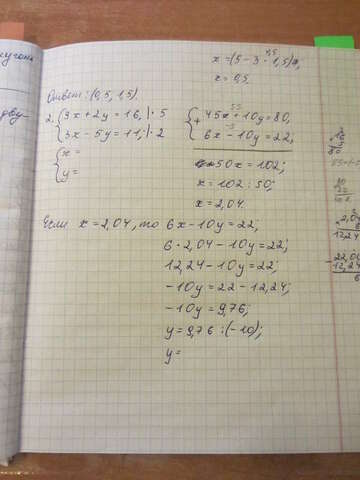 x = (5 - 3 · 1,5) 
x = 0,5
Ответ: (0,5; 1,5).
2. { 9x + 2y = 16, | · 5
{ 3x - 5y = 11; | · 2
{ x =
{ y =
+ { 45x + 10y = 80,
{ 6x - 10y = 22;
50x = 102;
x = 102 : 50;
x = 2,04.
Если x = 2,04, то 6x - 10y = 22;
6 · 2,04 - 10y = 22;
12,24 - 10y = 22;
-10y = 22 - 12,24;
-10y = 9,76;
y = 9,76 : (-10);
y =
2,04
6
12,24
22,00
12,24